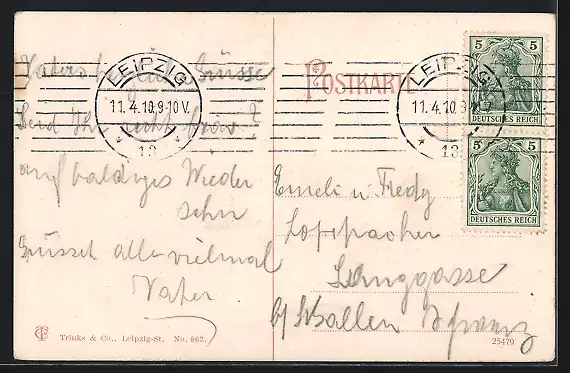 Grüsse
LEIPZIG
11.4.10.9-10V.
* 13 *
Seid Ihr brav?
auf baldiges Wieder
sehn
Grüsset alle vielmal
Vater
Trinks & Co., Leipzig-St. No. 862.
POSTKARTE
LEIPZIG
11.4.10.9
* 13
5 5
DEUTSCHES REICH
5 5
DEUTSCHES REICH
Emeli u Fredy
Langgasse
b/ St Gallen Schweiz
25479